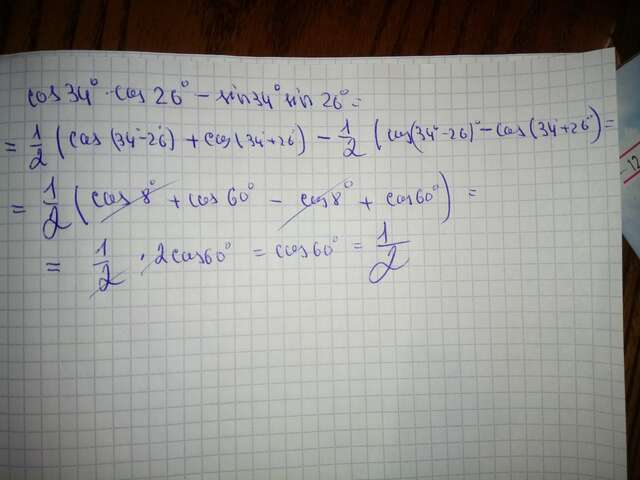 cos 34° · cos 26° - sin 34° sin 26° =
= 1/2 (cos (34° - 26°) + cos (34° + 26°) - 1/2 (cos (34° - 26)° - cos (34° + 26°) =
= 1/2 (cos 8° + cos 60° - cos 8° + cos 60°) =
= 1/2 · 2 cos 60° = cos 60° = 1/2
- 12